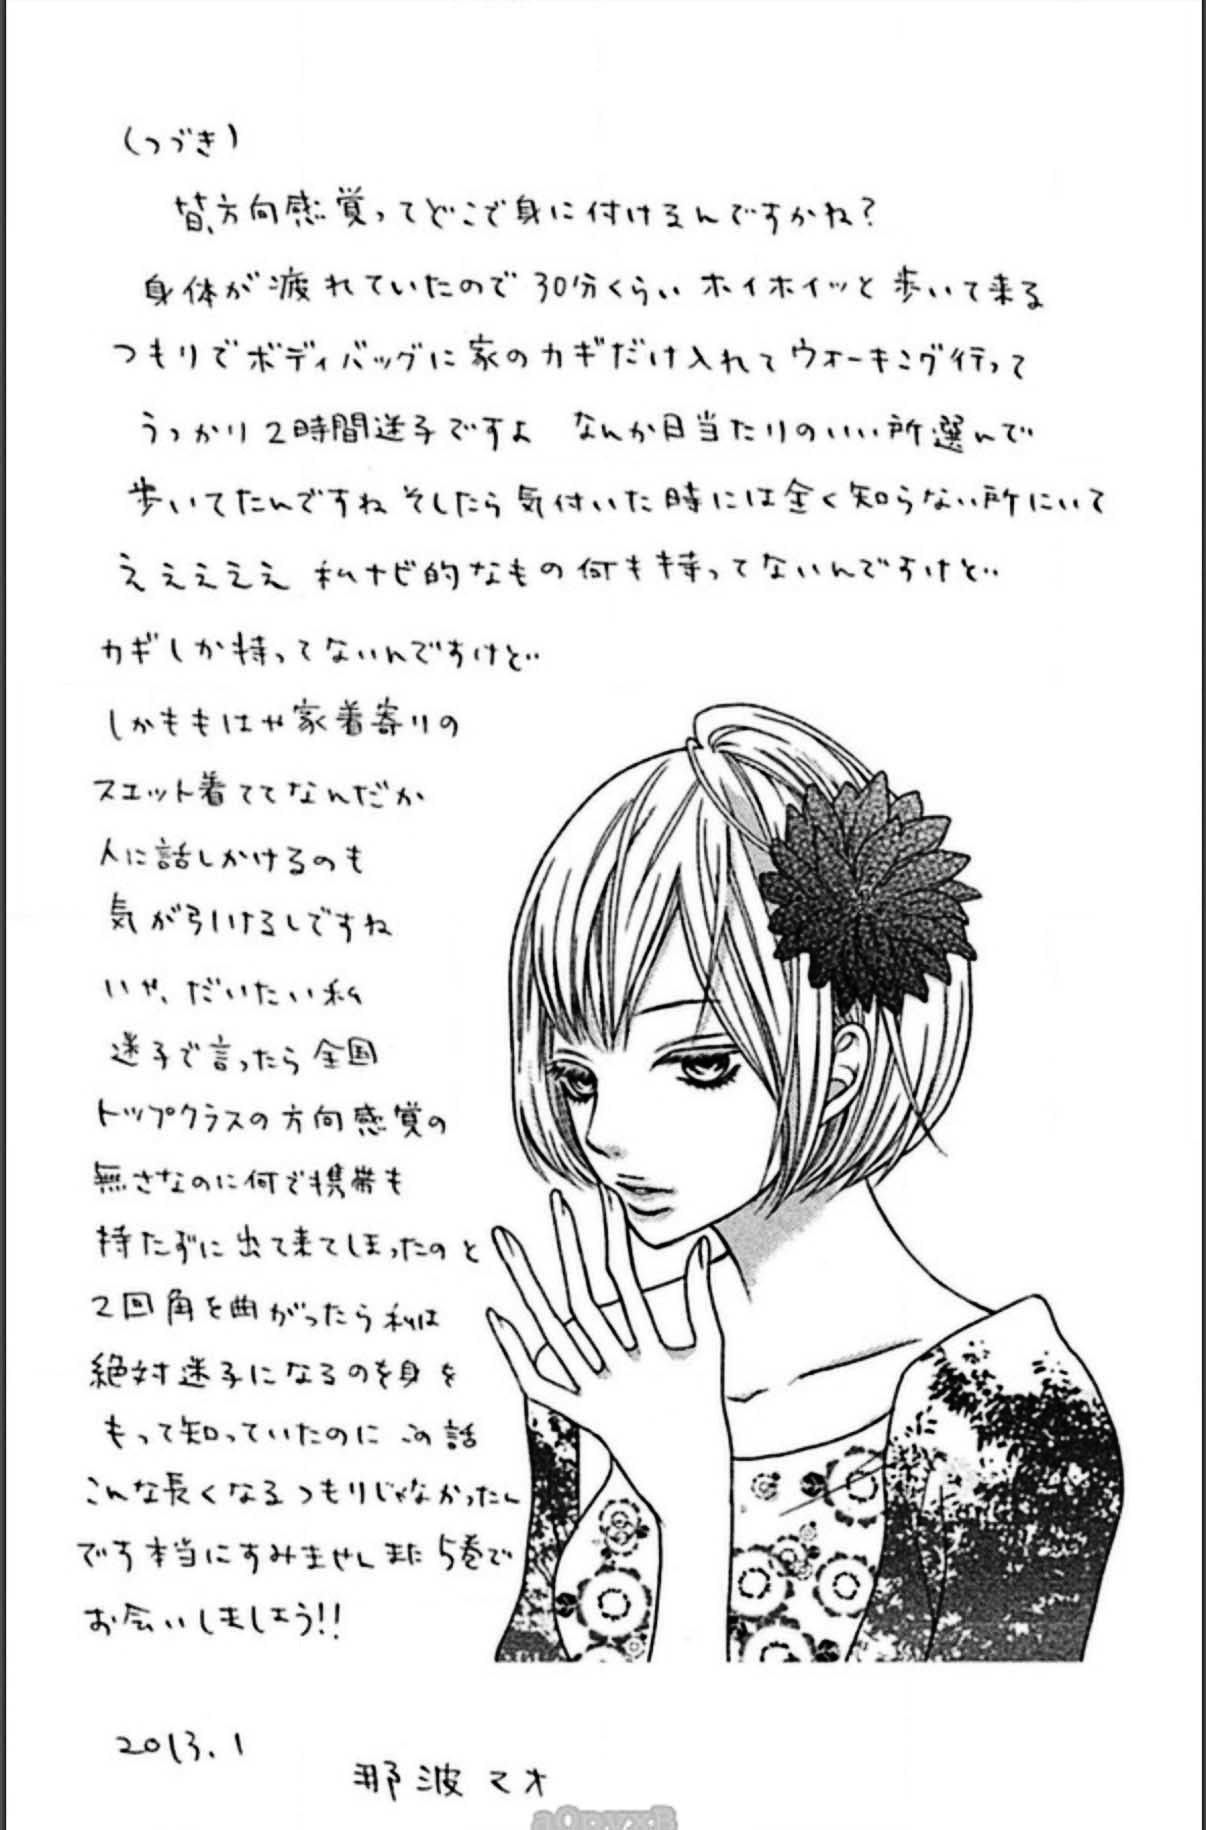 (つづき)
皆、方向感覚ってどこで身に付けるんですかね?
身体が疲れていたので30分くらいホイホイッと歩いて来る
つもりでボディバッグに家のカギだけ入れてウォーキング行って
うっかり2時間迷子ですよ なんか日当たりのいい所選んで
歩いてたんですね そしたら気付いた時には全く知らない所にいて
えええええ 私ナビ的なもの何も持ってないんですけど‥
カギしか持ってないんですけど‥
しかももはや家着寄りの
スエット着ててなんだか
人に話しかけるのも
気が引けるしですね
いや、だいたい私
迷子で言ったら全国
トップクラスの方向感覚の
無さなのに何で携帯も
持たずに出て来てしまったのと
2回角を曲がったら私は
絶対迷子になるのを身を
もって知っていたのに この話
こんな長くなるつもりじゃなかったん
です本当にすみませんまた5巻で
お会いしましょう!!
2013.1
那波マオ
a0pyxB